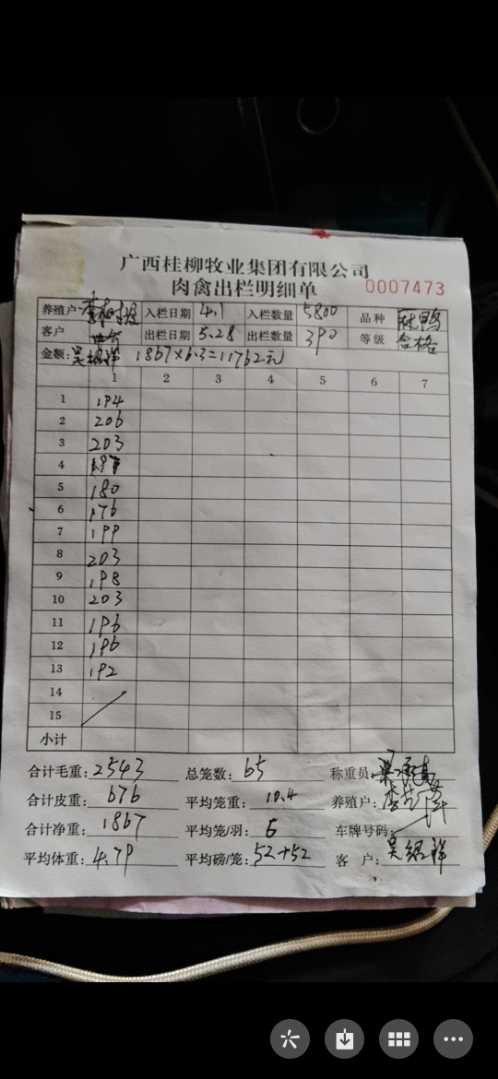 广西桂柳牧业集团有限公司
肉禽出栏明细单 0007473
养殖户 入栏日期 4.1 入栏数量 5800 品种 鸭
客户 出栏日期 5.28 出栏数量 390 等级 合格
金额: 1867×6.3=11762元
1 2 3 4 5 6 7
1 194
2 206
3 203
4
5 180
6 176
7 199
8 203
9 198
10 203
11 196
12 196
13 192
14
15
小计
合计毛重: 2543 总笼数: 65 称重员
合计皮重: 676 平均笼重: 10.4 养殖户:
合计净重: 1867 平均笼/羽: 6 车牌号码:
平均体重: 4.79 平均磅/笼: 52+52 客户: 吴绍祥